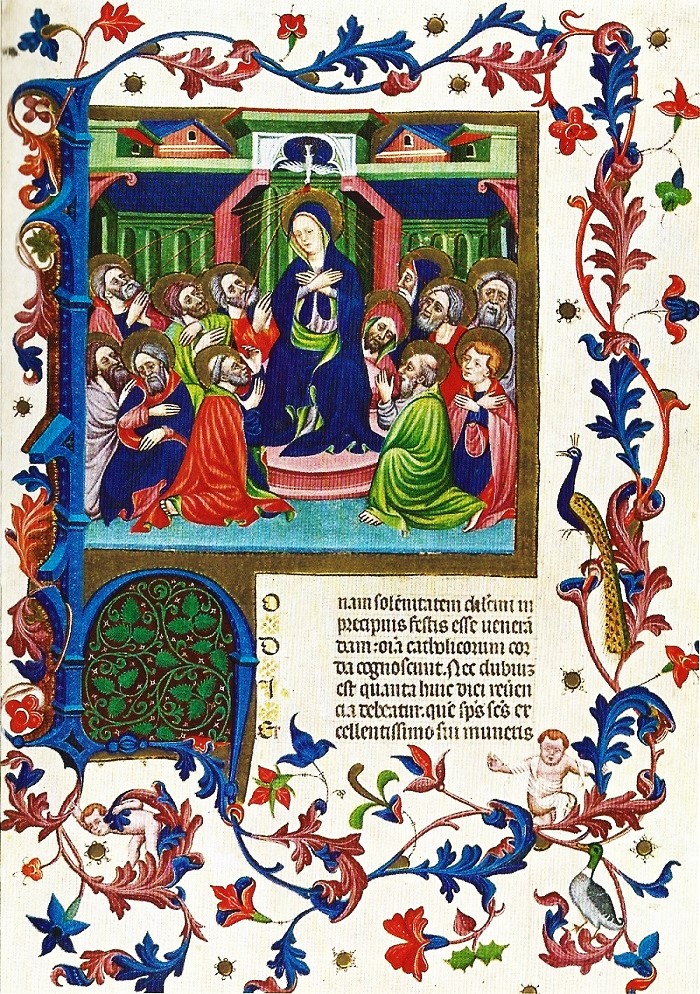 H
O
D
I
Er
nam solēnitatem in
precipuis festis esse uenerā
dam: oīa catholicorum cor
da cognoscunt. Nec dubiuz
est quanta huic diei reūen
cia debeatur. quē sp̄s sc̄s ex
cellentissimo sui muneris